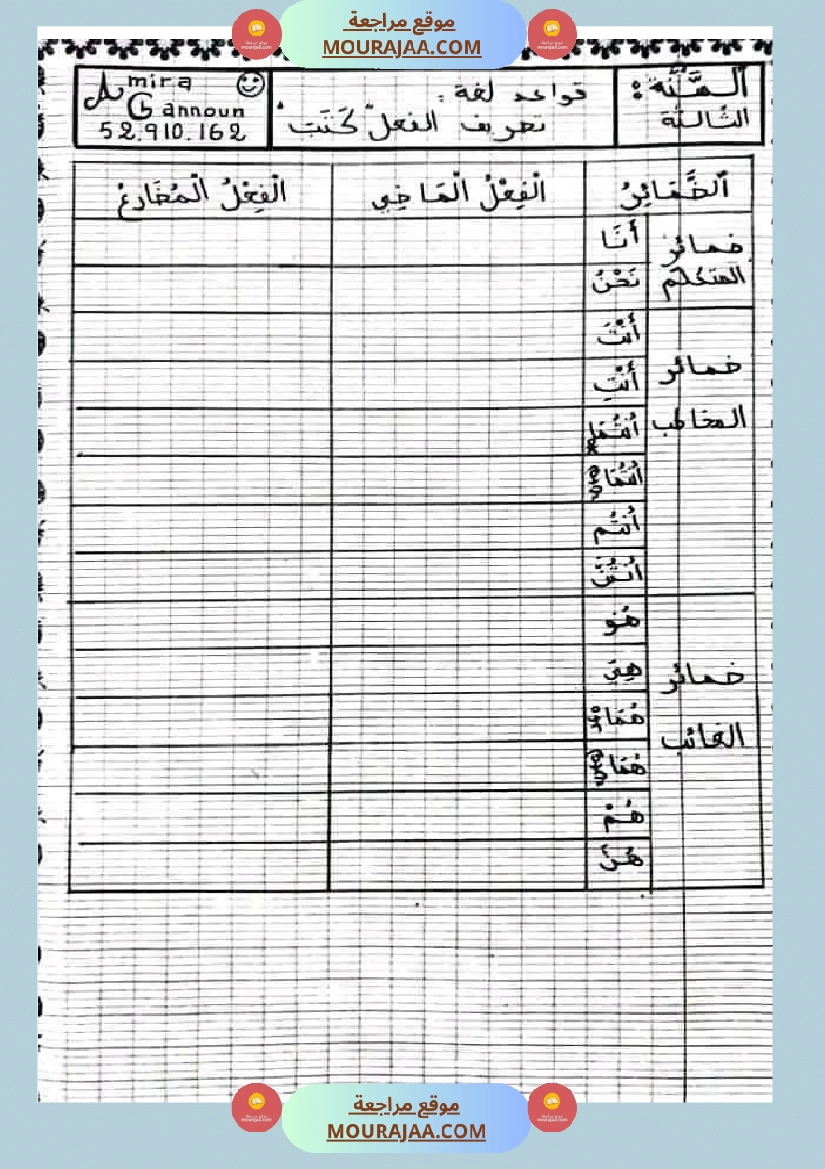 موقع مراجعة
MOURAJAA.COM
السَّنَة:
الثالثة
قواعد لغة:
تصريف الفعل "كَتَبَ"
Amira
Gannoun
52.910.162
الضَّمَائِرُ
الْفِعْلُ الْمَاضِي
الْفِعْلُ الْمُضَارِعُ
ضمائر
المتكلم
أَنَا
نَحْنُ
ضمائر
المخاطب
أَنْتَ
أَنْتِ
أَنْتُمَا
أَنْتُمَا
أَنْتُم
أَنْتُنَّ
ضمائر
الغائب
هُوَ
هِيَ
هُمَا
هُمَا
هُمْ
هُنَّ
موقع مراجعة
MOURAJAA.COM